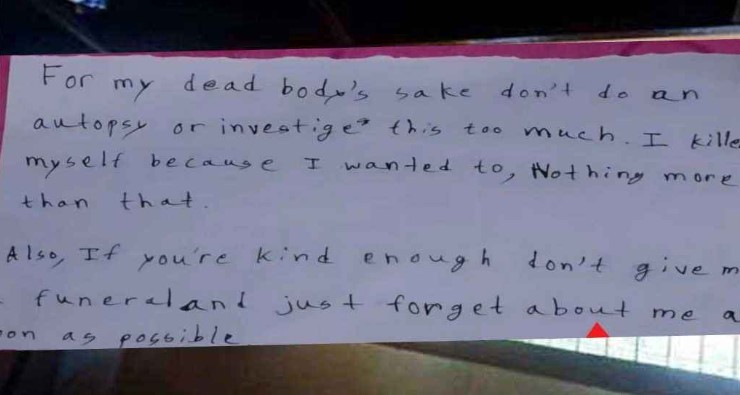 For my dead body's sake don't do an
autopsy or investige this too much. I kille
myself because I wanted to, Nothing more
than that.
Also, If you're kind enough don't give m
funeral and just forget about me a
oon as possible